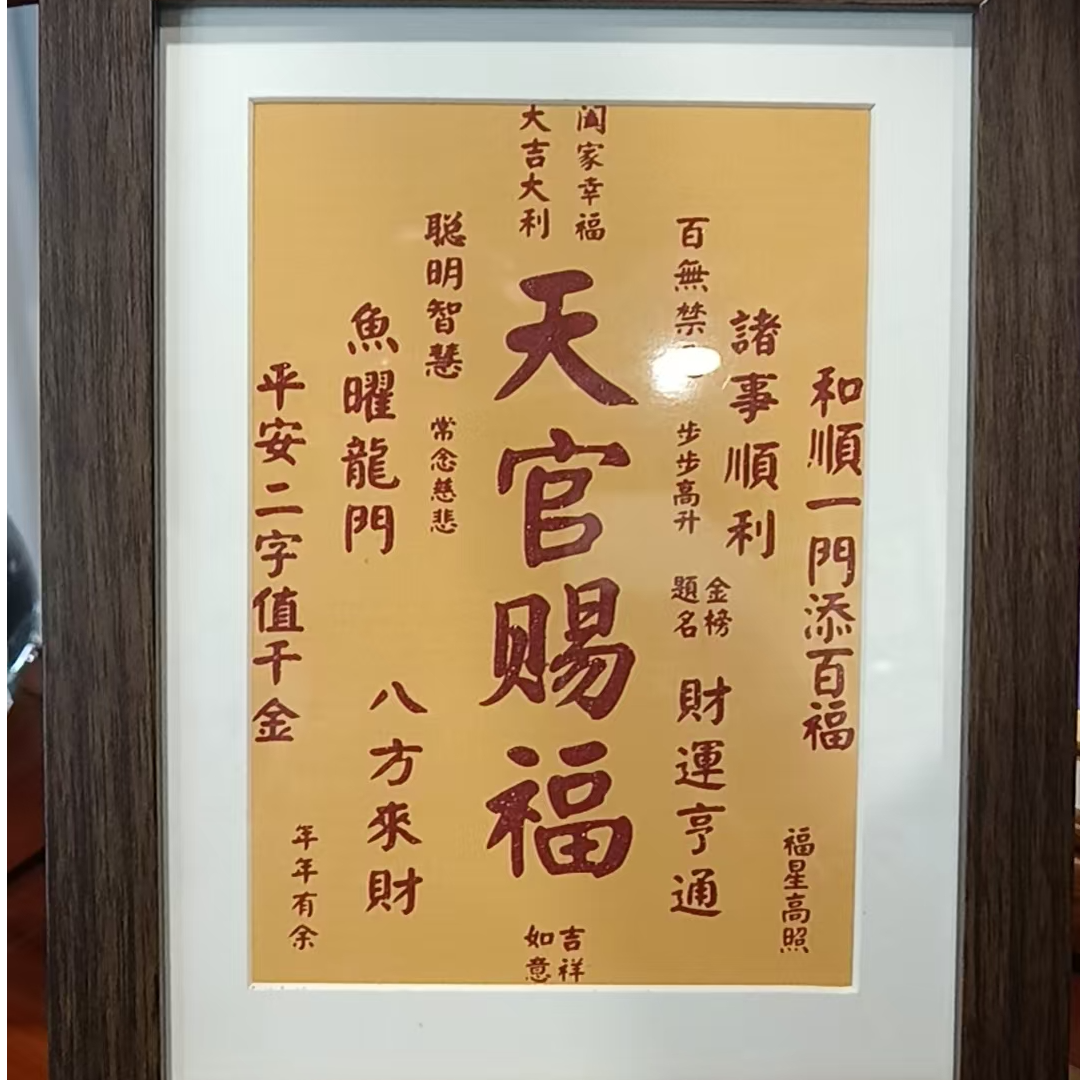 和順一門添百福
福星高照
諸事順利
百無禁
步步高升
金榜
題名
財運亨通
闔家幸福
大吉大利
天官赐福
吉祥
如意
聪明智慧
常念慈悲
魚曜龍門
八方來財
平安二字值千金
年年有余